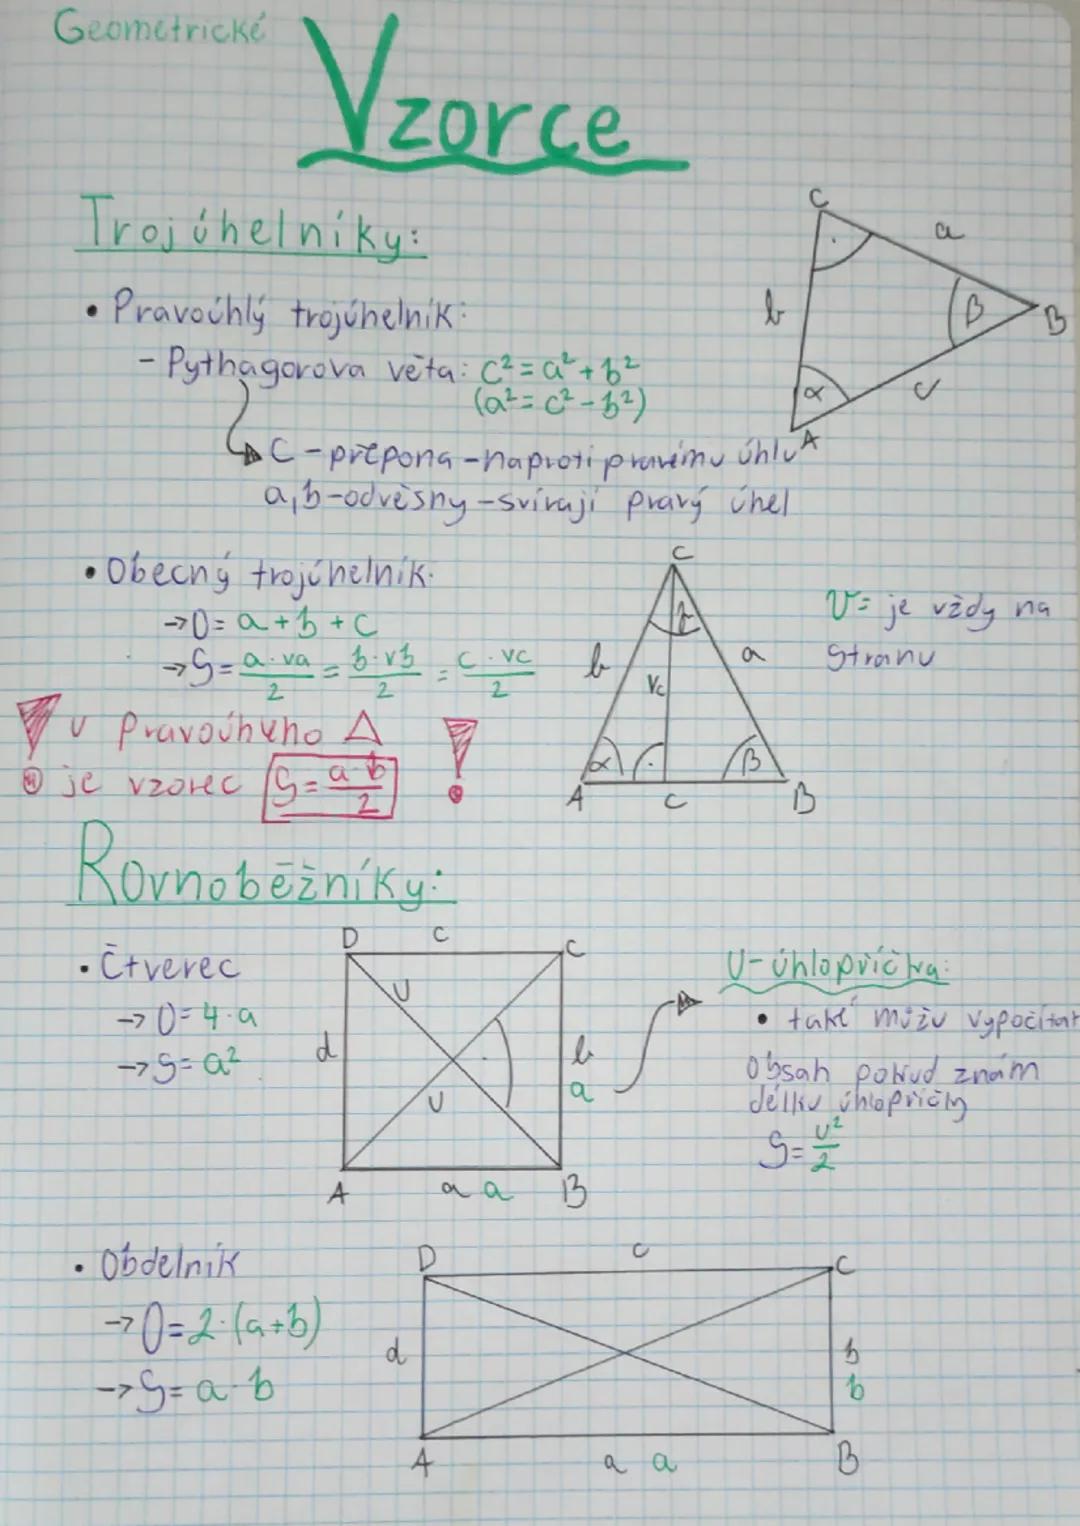 Geometrické
Vzorce
Trojúhelníky:
• Pravoúhlý trojúhelník:
- Pythagorova věta: c² = a² + b²
(a² = c² - b²)
C - přepona - naproti pravému úhlu
a, b - odvěsny - svírají pravý úhel
C
a
b
β
B
α
c
A
• Obecný trojúhelník:
→ O = a + b + c
→ S = a · va / 2 = b · vb / 2 = c · vc / 2
C
γ
b
a
vc
α
β
A
c
B
V = je vždy na
stranu
U pravoúhlého △
je vzorec S = a · b / 2 !
Rovnoběžníky:
• Čtverec
→ O = 4 · a
→ S = a²
D
c
C
U
d
b
a
U
A
a a
B
U - úhlopříčka:
• také můžu vypočítat
obsah pokud znám
délku úhlopříčky
S = u² / 2
• Obdelník
→ O = 2 · (a + b)
→ S = a · b
D
c
C
d
b
b
A
a a
B